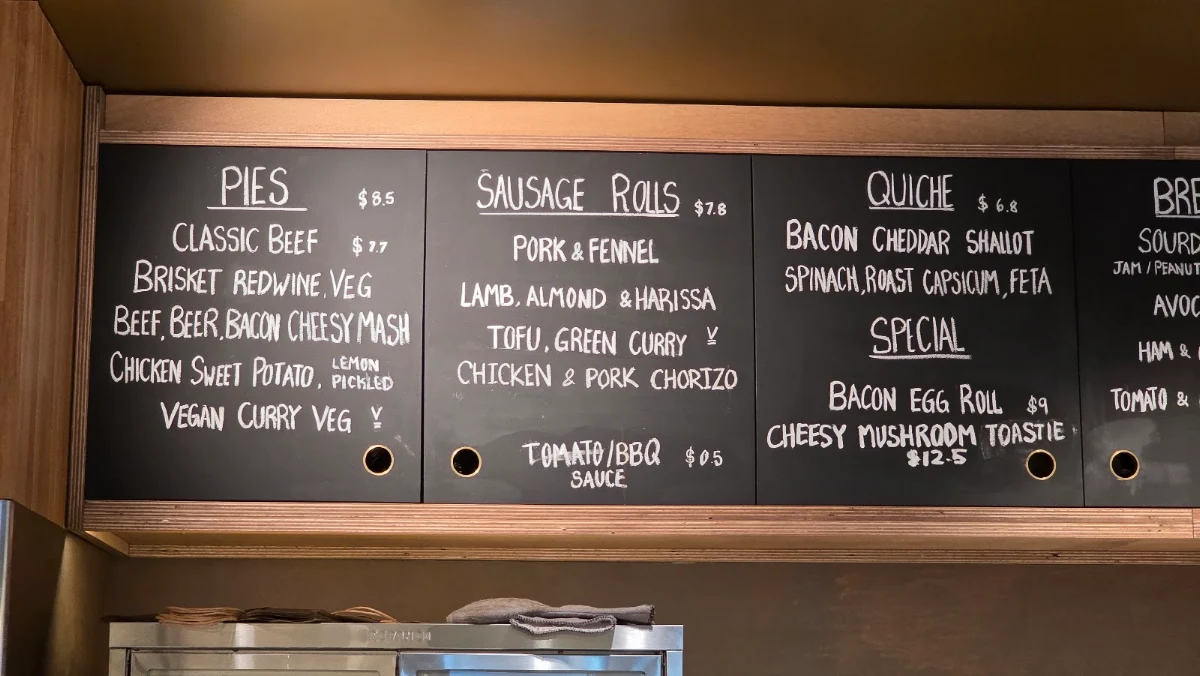 PIES $8.5
CLASSIC BEEF $7.7
BRISKET REDWINE, VEG
BEEF, BEER, BACON CHEESY MASH
CHICKEN SWEET POTATO, LEMON PICKLED
VEGAN CURRY VEG V
SAUSAGE ROLLS $7.8
PORK & FENNEL
LAMB, ALMOND & HARISSA
TOFU, GREEN CURRY V
CHICKEN & PORK CHORIZO
TOMATO/BBQ $0.5
SAUCE
QUICHE $6.8
BACON CHEDDAR SHALLOT
SPINACH, ROAST CAPSICUM, FETA
SPECIAL
BACON EGG ROLL $9
CHEESY MUSHROOM TOASTIE
$12.5
BRE
SOURD
JAM / PEANUT
AVOC
HAM &
TOMATO &